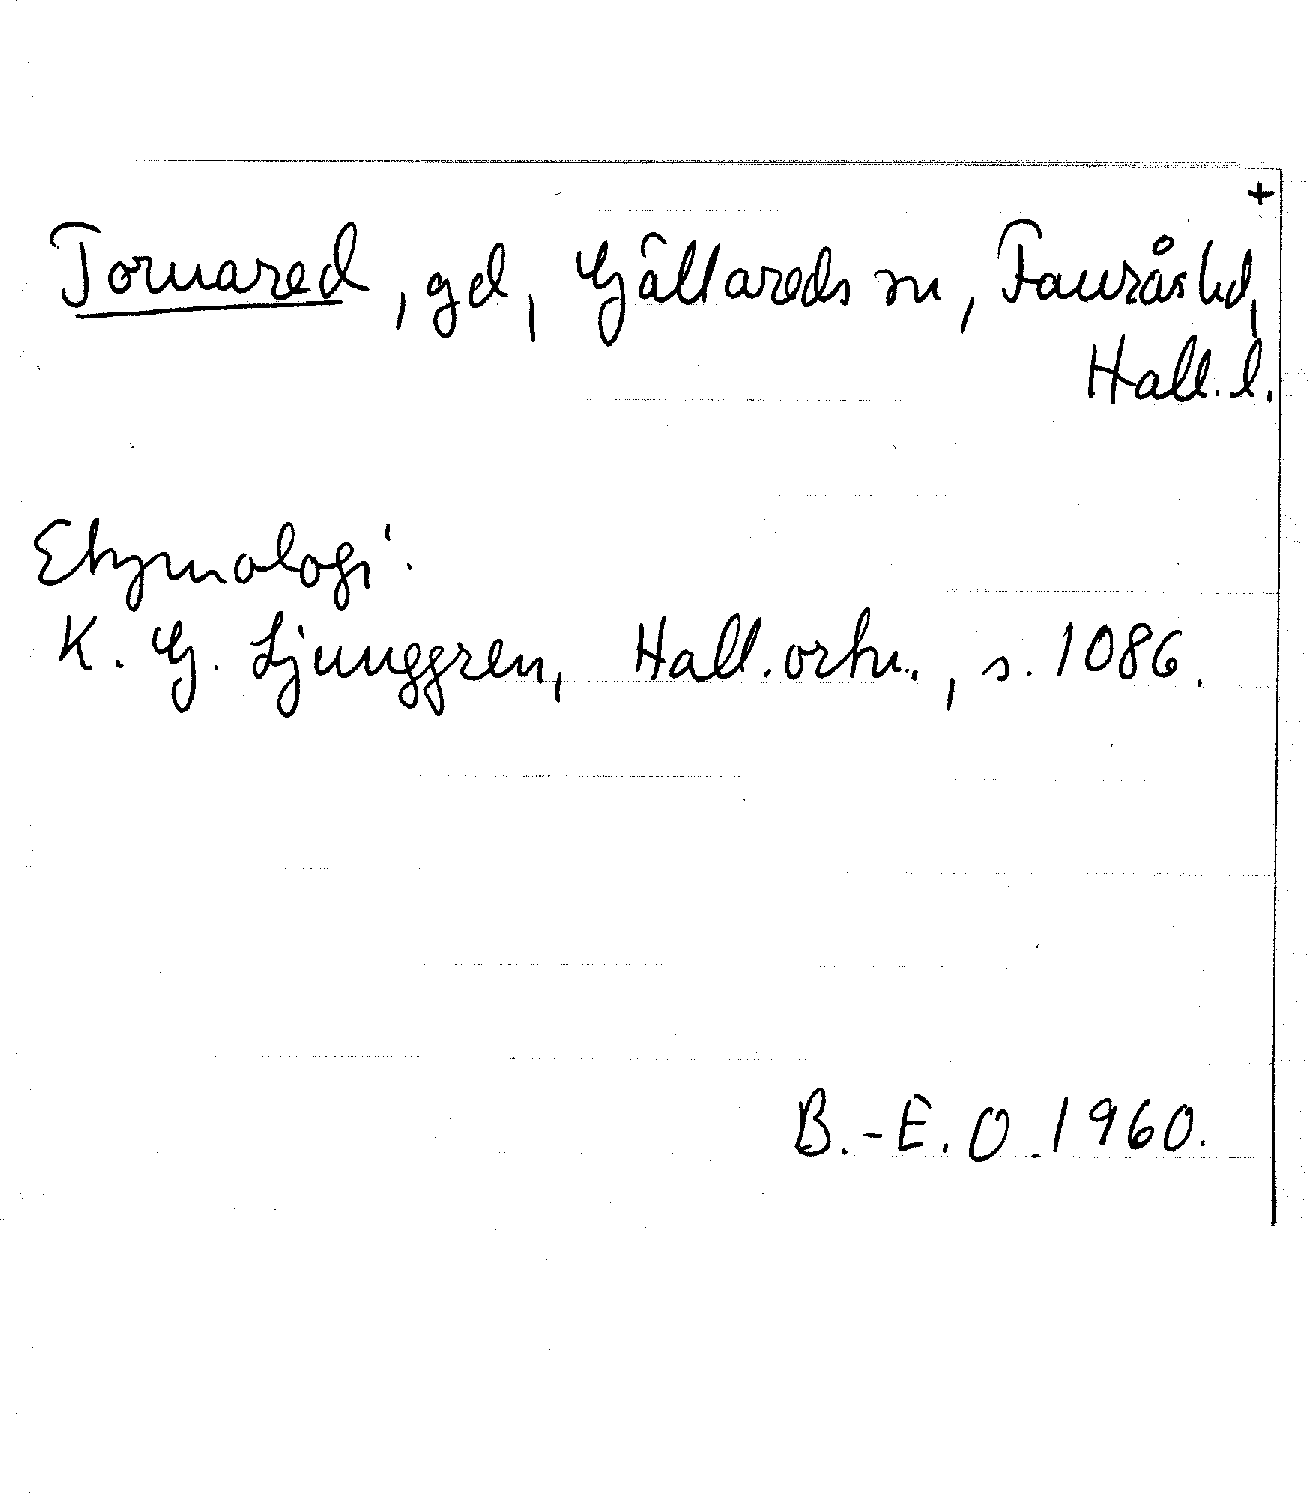 +
Tornared, gd, Gällareds sn, Faurås hd,
Hall. l.
Etymologi.
K. G. Ljunggren, Hall. ortn., s. 1086.
B.-E. O 1960.